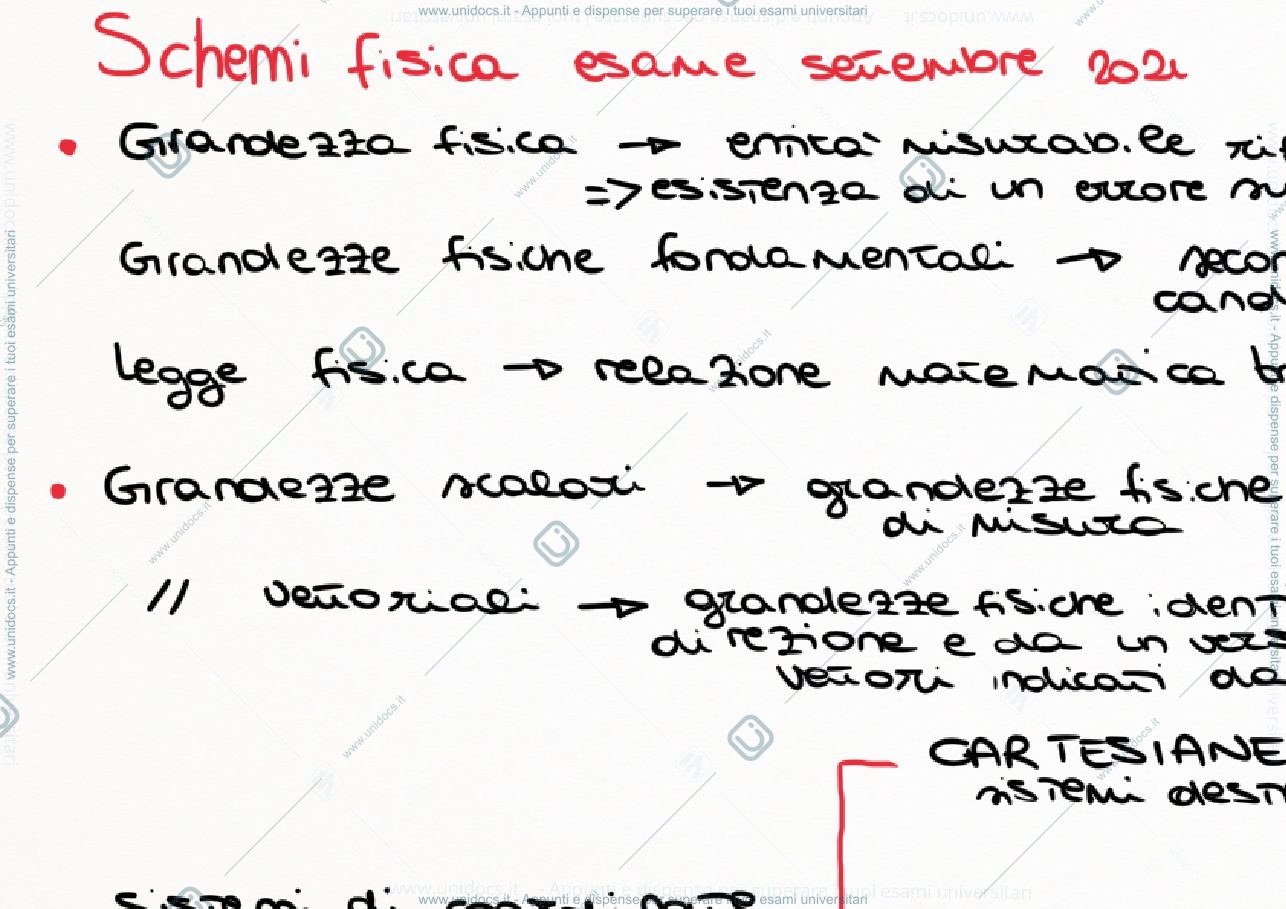 www.unidocs.it - Appunti e dispense per superare i tuoi esami universitari
Schemi fisica esame settembre 2021
• Grandezza fisica → entità misurabile rif
=> esistenza di un errore su
Grandezze fisiche fondamentali → secon
cand
legge fisica → relazione matematica tr
• Grandezze scalari → grandezze fisiche
di misura
// vettoriali → grandezze fisiche ident
direzione e da un vers
vettori indicati da
CARTESIANE
sistemi dest
sistemi di coordinate
www.unidocs.it - Appunti e dispense per superare i tuoi esami universitari